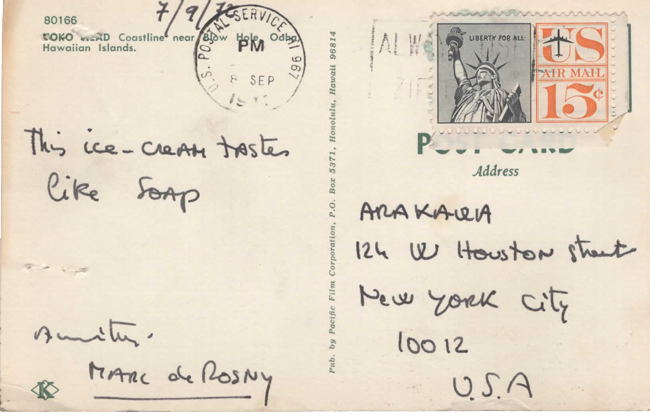 80166
KOKO HEAD Coastline near Blow Hole, Oahu
Hawaiian Islands.
7/9/72
U.S. POSTAL SERVICE HI 967
PM
8 SEP
LIBERTY FOR ALL
US
AIR MAIL
15¢
POST CARD
Address
This ice-cream tastes
like SOAP
ARAKAWA
124 W Houston Street
New York City
10012
U.S.A
MARC de ROSNY
K
Pub. by Pacific Film Corporation, P.O. Box 5371, Honolulu, Hawaii 96814